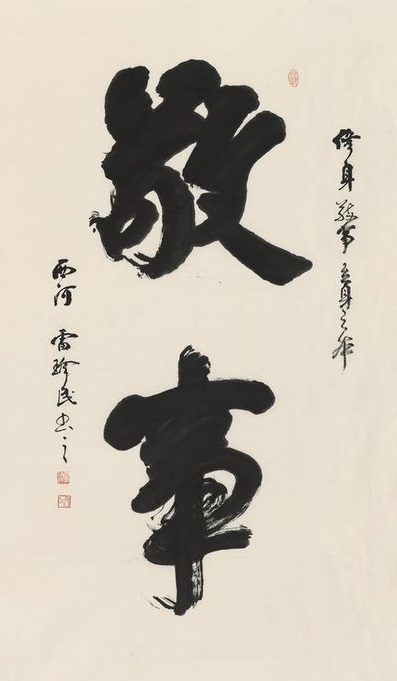 敬事
修身敬事立身之本
西河雷珍民书之